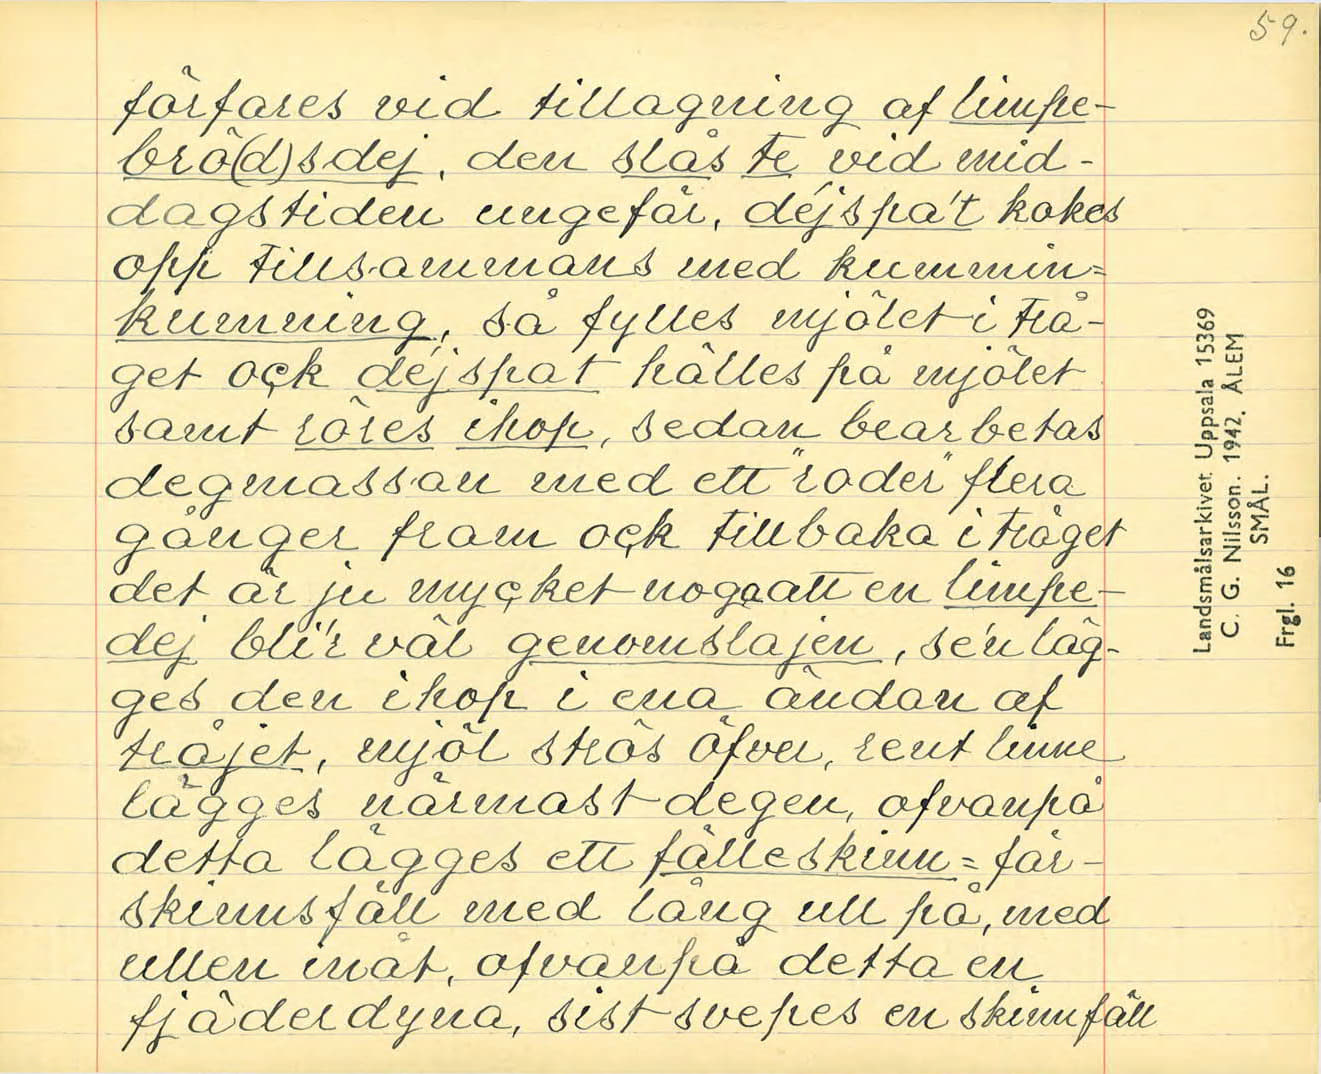 59.
förfares vid tillagning af limpe-
brö(d)sdej, den slås te vid mid-
dagstiden ungefär, déjspa't kokes
opp tillsammans med kummin=
kumning, så fylles mjölet i trå-
get ock déjspat hälles på mjölet
samt röres ihop, sedan bearbetas
degmassan med ett "roder" flera
gånger fram ock tillbaka i tråget
det är ju mycket noga att en limpe-
dej bli'r väl genomslajen, se'n läg-
ges den ihop i ena ändan af
tråjet, mjöl strös öfver, rent linne
lägges närmast degen, ofvanpå
detta lägges ett fälleskinn = får-
skinnsfäll med lång ull på, med
ullen inåt, ofvanpå detta en
fjäderdyna, sist svepes en skinnfäll
Landsmålsarkivet Uppsala 15369
C. G. Nilsson. 1942. ÅLEM
SMÅL.
Frgl. 16